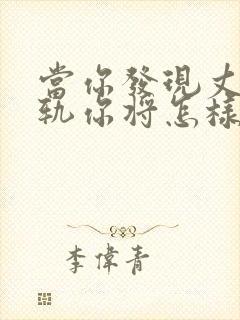 當你發現丈
軌你將怎樣
李偉青